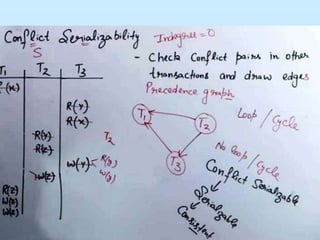 Conflict Serializability Indegree = 0
S
- Check Conflict pairs in other
transactions and draw edges
Precedence graph
T1 T2 T3
R(x)
R(y)
R(x)
R(y)
R(z)
W(y)
W(z)
R(z)
W(x)
W(z)
T2
R(z)
W(z)
T1
T2
T3
Loop / Cycle
No loop / Cycle
Conflict Serializable
Serializable
Consistent